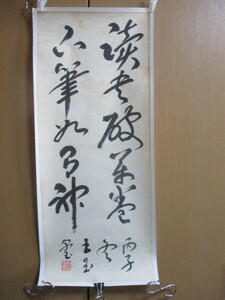 讀書破萬卷
下筆如有神
丙子
冬